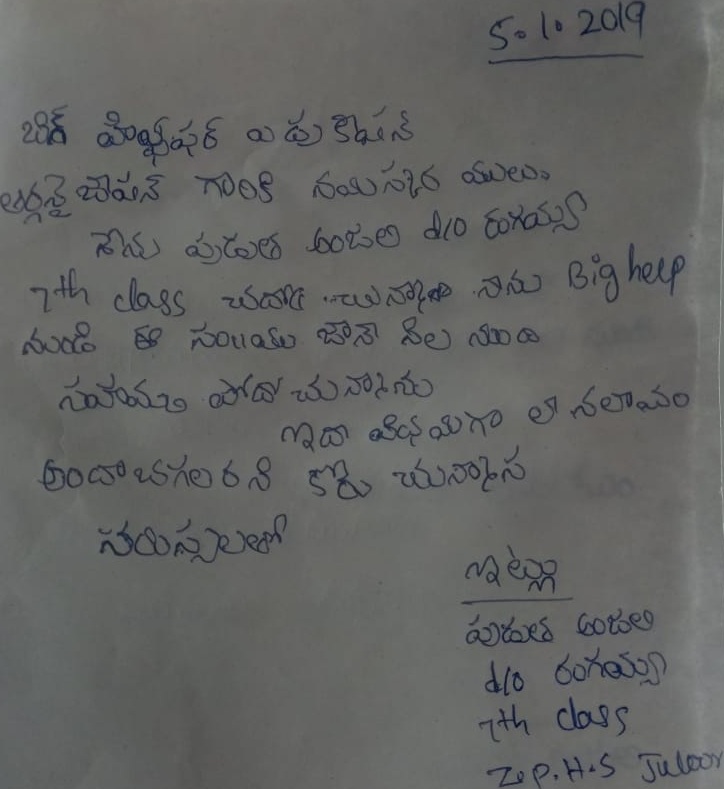 5.1.2019
బిగ్ హెల్ప్ఫర్ ఎడుకేషన్
ఆర్గనైజేషన్ గారికి నమస్కారములు.
నేను పుడుత అంజలి d/o రంగయ్య
7th class చదువుచున్నాను నాను Big help
నుండి ఈ సంll జూన్ నెల నుండి
సహాయం పోందుచున్నాను
ఇదే విధముగా
అందించగలరని కోరుచున్నాను
నమస్సులతో
ఇట్లు
పుడుత అంజలి
d/o రంగయ్య
7th class
Z.P.H.S Juloor